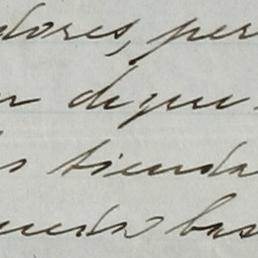 dores, per
n deque
s tienda
ueda bas